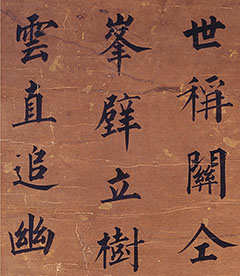 世稱關仝
峯壁立樹
雲直追幽